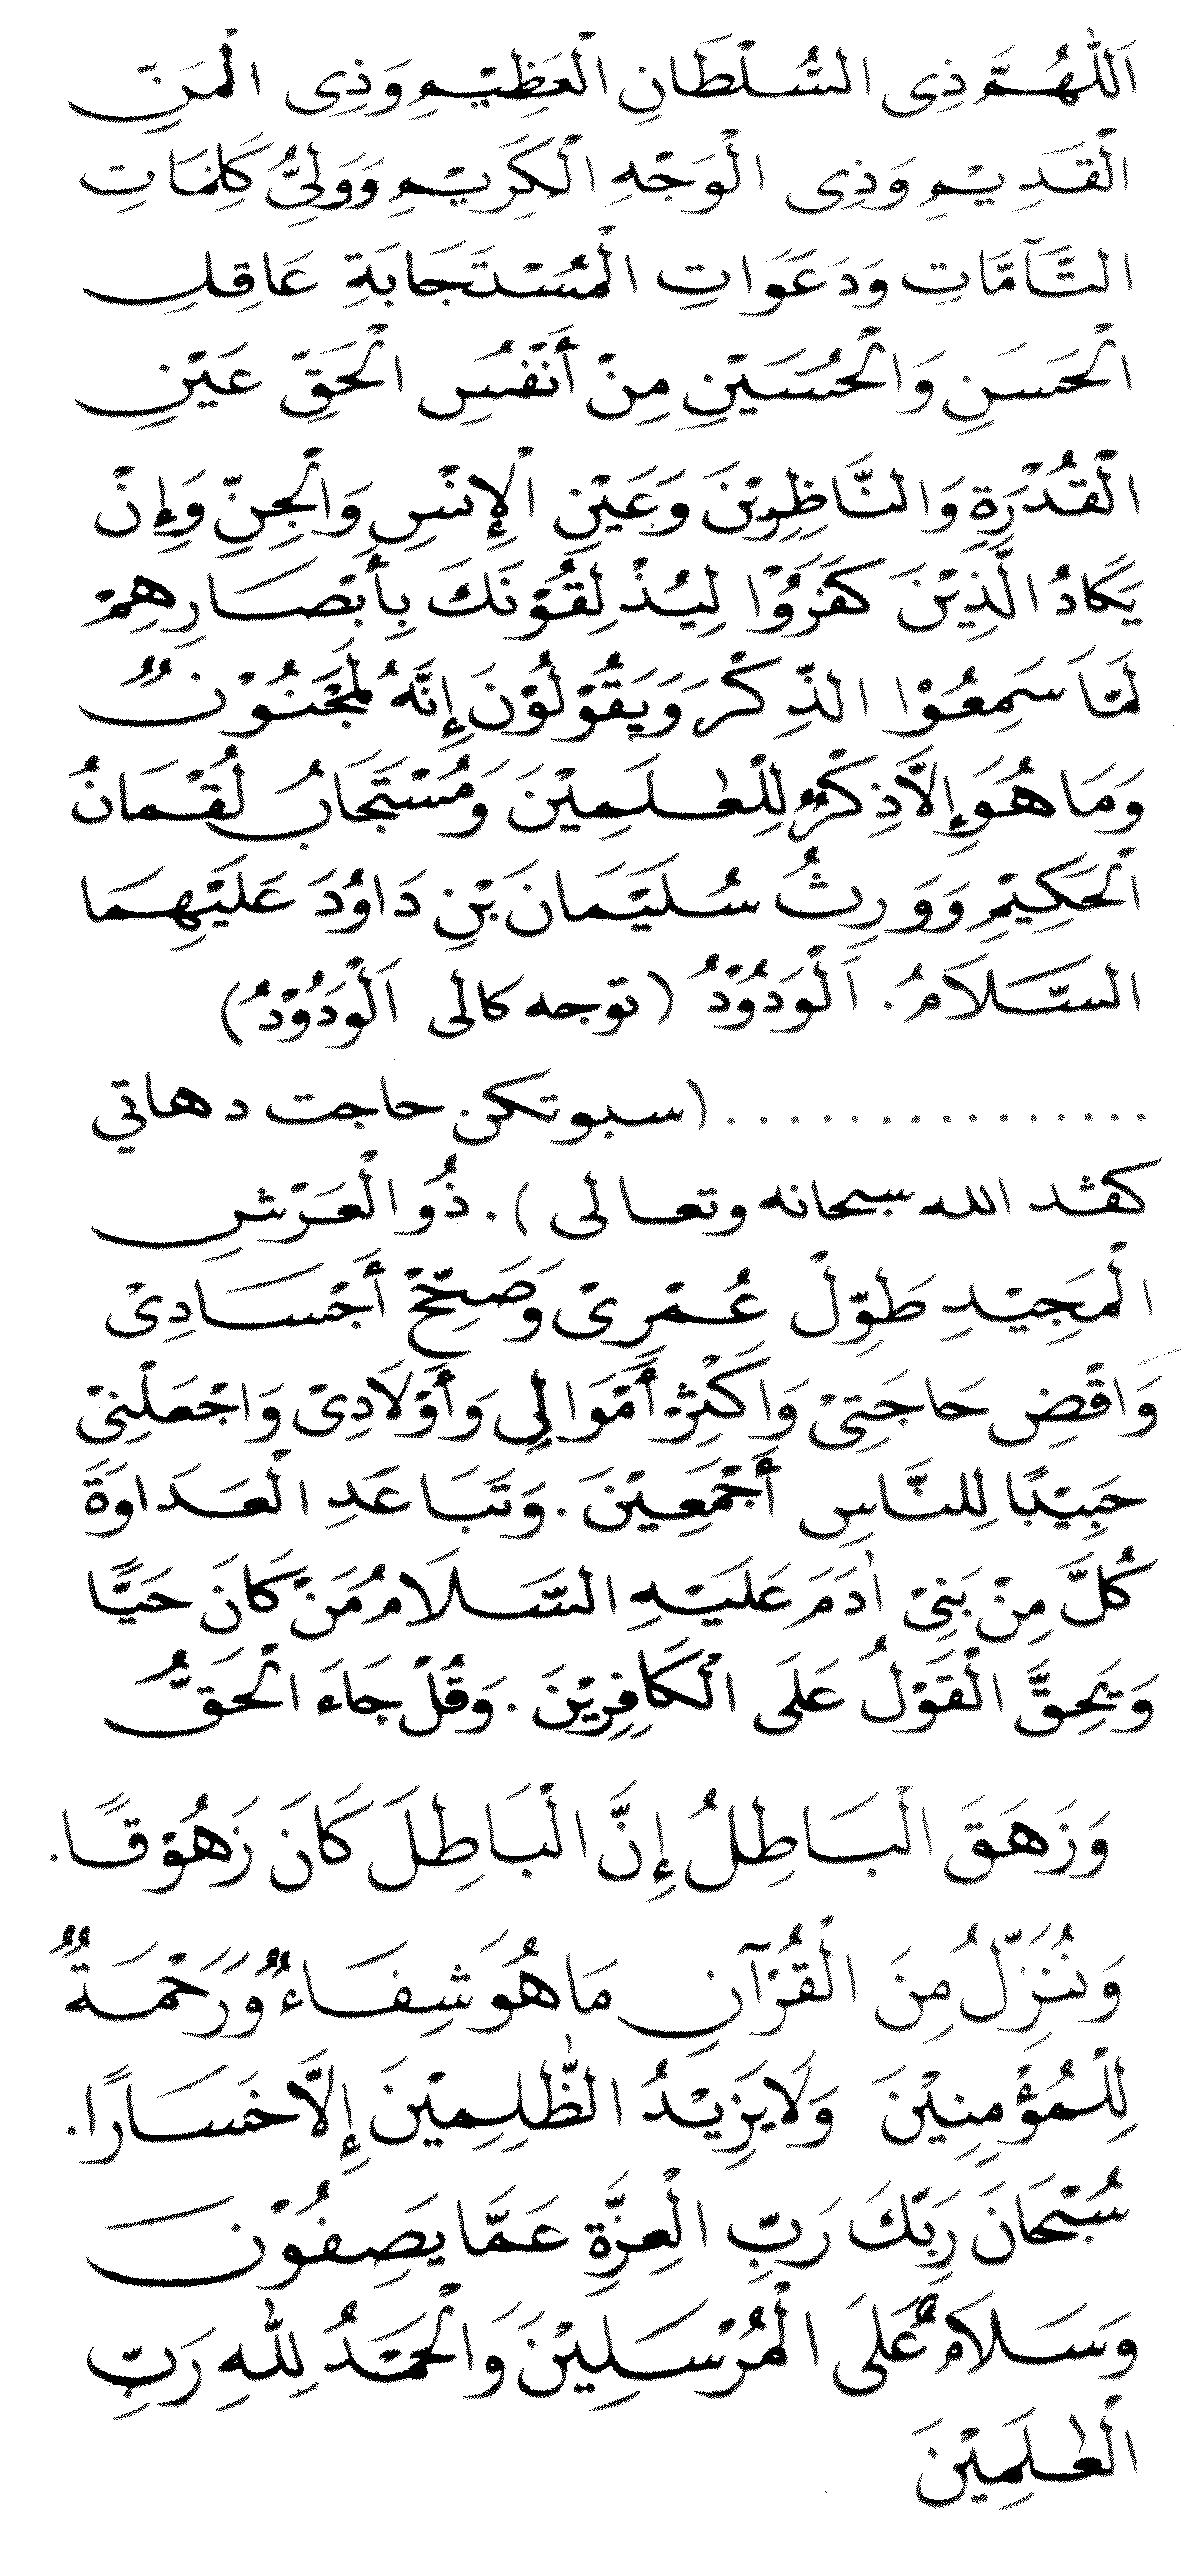 اَللّٰهُمَّ ذِى السُّلْطَانِ الْعَظِيْمِ وَذِى الْمَنِّ
الْقَدِيْمِ وَذِى الْوَجْهِ الْكَرِيْمِ وَوَلِيُّ كَلِمَاتِ
التَّآمَّاتِ وَدَعَوَاتِ الْمُسْتَجَابَةِ عَاقِلِ
الْحَسَنِ وَالْحُسَيْنِ مِنْ أَنْفُسِ الْحَقِّ عَيْنِ
الْقُدْرَةِ وَالنَّاظِرِيْنَ وَعَيْنِ الْإِنْسِ وَالْجِنِّ وَإِنْ
يَكَادُ الَّذِيْنَ كَفَرُوْا لِيُذْ لِقُوْنَكَ بِأَبْصَارِهِمْ
لَمَّا سَمِعُوْا الذِّكْرَ وَيَقُوْلُوْنَ إِنَّهُ لَمَجْنُوْنٌ
وَمَا هُوَ إِلَّا ذِكْرٌ لِلْعٰلَمِيْنَ وَمُسْتَجَابُ لُقْمَانُ
الْحَكِيْمِ وَوَرِثُ سُلَيْمَانَ بْنِ دَاوُدَ عَلَيْهِمَا
السَّلَامُ. اَلْوَدُوْدُ (توجه كالى اَلْوَدُوْدُ)
................ (سبوتكن حاجت دهاتي
كفد الله سبحانه وتعالى). ذُو الْعَرْشِ
الْمَجِيْدِ طَوِّلْ عُمْرِىْ وَصَحِّحْ أَجْسَادِىْ
وَاقْضِ حَاجَتِىْ وَاكْثِرْ أَمْوَالِي وَأَوْلَادِىْ وَاجْعَلْنِىْ
حَبِيْبًا لِلنَّاسِ أَجْمَعِيْنَ. وَتَبَاعَدِ الْعَدَاوَةَ
كُلَّ مِنْ بَنِىْ اٰدَمَ عَلَيْهِ السَّلَامُ مَنْ كَانَ حَيًّا
وَيَحِقَّ الْقَوْلُ عَلَى الْكَافِرِيْنَ. وَقُلْ جَاءَ الْحَقُّ
وَزَهَقَ الْبَاطِلُ إِنَّ الْبَاطِلَ كَانَ زَهُوْقًا.
وَنُنَزِّلُ مِنَ الْقُرْآنِ مَا هُوَ شِفَاءٌ وَرَحْمَةٌ
لِلْمُؤْمِنِيْنَ وَلَا يَزِيْدُ الظّٰلِمِيْنَ إِلَّا خَسَارًا.
سُبْحَانَ رَبِّكَ رَبِّ الْعِزَّةِ عَمَّا يَصِفُوْنَ
وَسَلَامٌ عَلَى الْمُرْسَلِيْنَ وَالْحَمْدُ لِلّٰهِ رَبِّ
الْعٰلَمِيْنَ